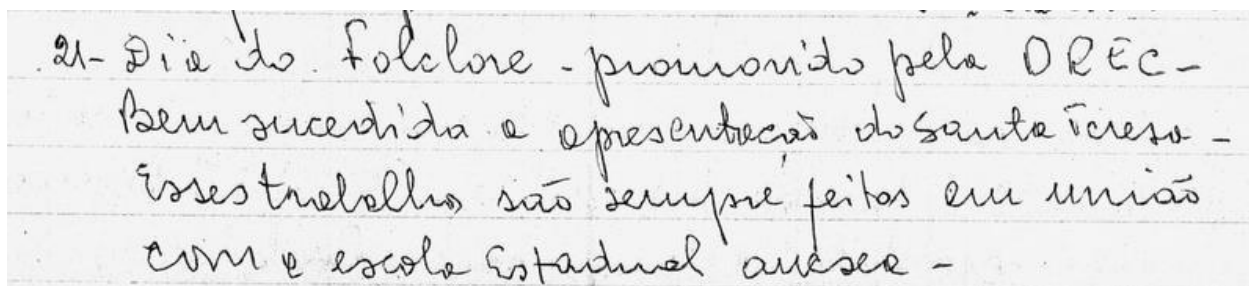 21- Dia do Folclore - promovido pela DREC -
Bem sucedida a apresentação do Santa Teresa -
Esses trabalhos são sempre feitos em união
com a escola Estadual anexa -